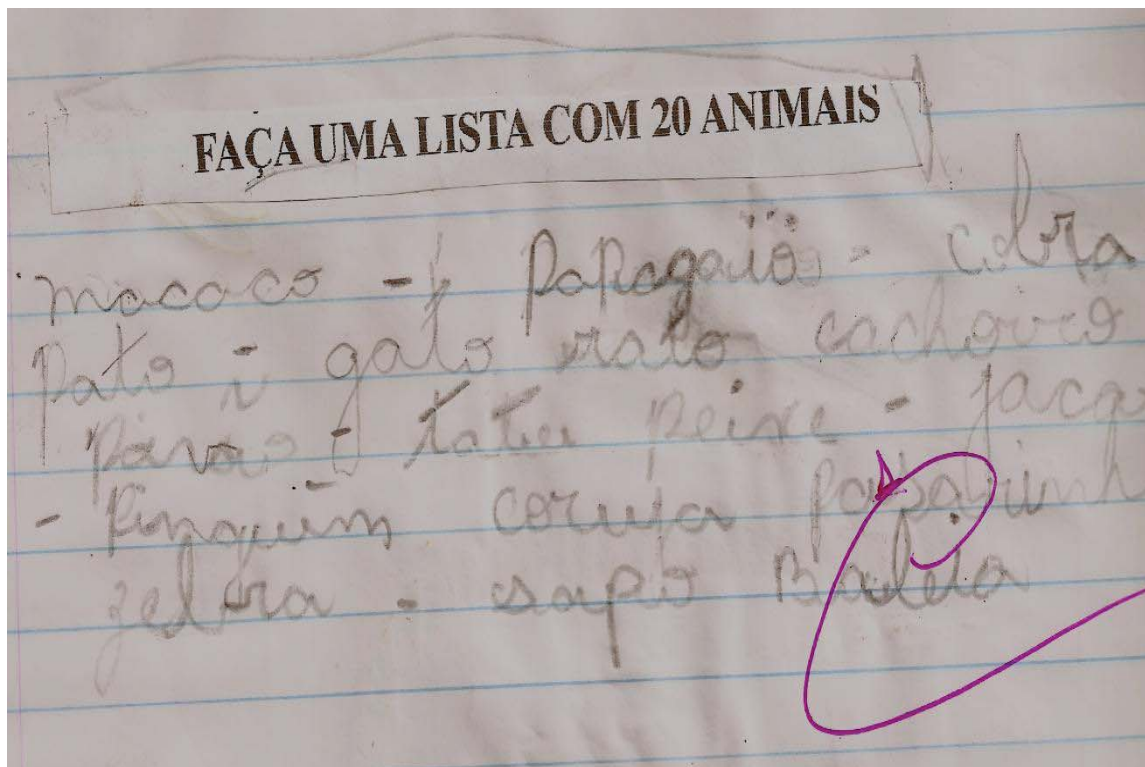 FAÇA UMA LISTA COM 20 ANIMAIS
macaco - papagaio - cobra
pato - gato rato cachorro
pavão - tatu peixe - jaca
- pinguim coruja pasarinh
zebra - sapo Baleia